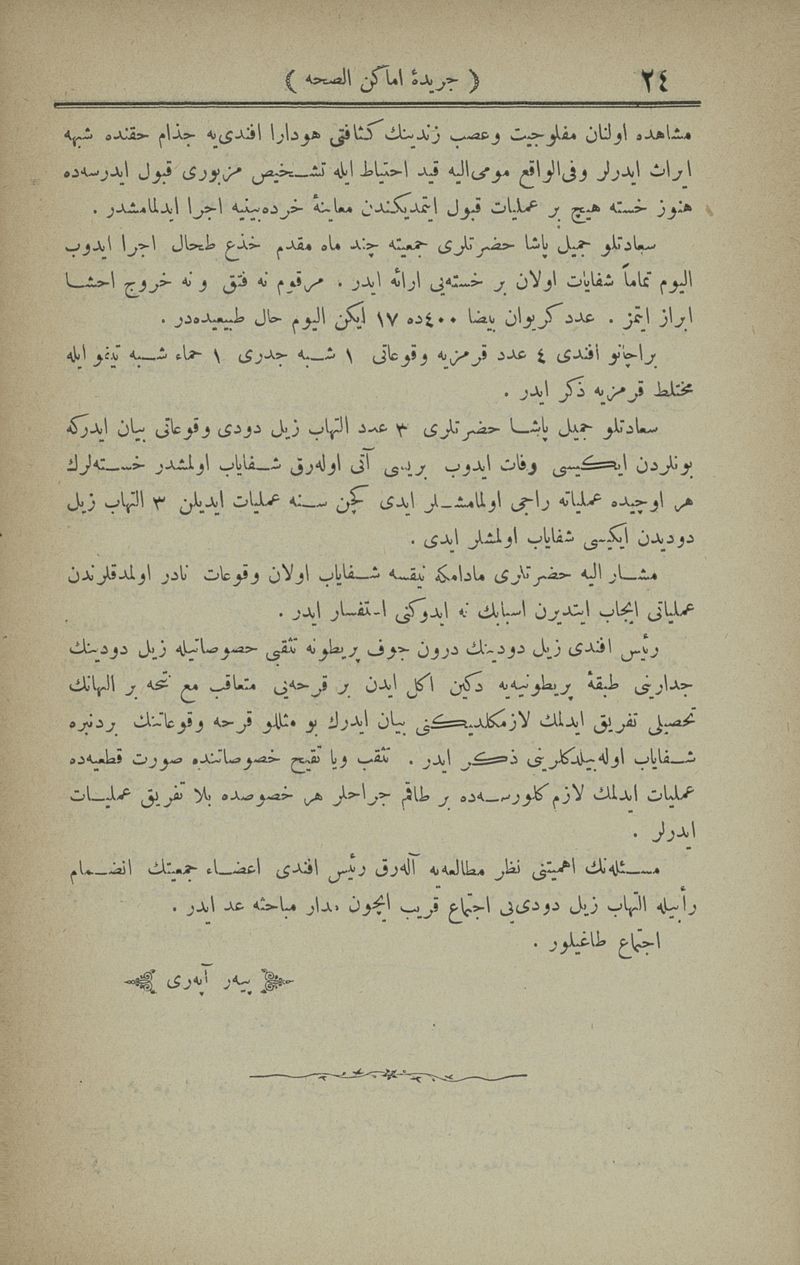 ٢٤ ﴿ جريدهٔ اماكن الصحه ﴾
مشاهده اولنان مفلوجيت وعصب زندينك كثافتى هودارا افندى‌يه جذام حقنده شبهه
ايراث ايدرلر وفى‌الواقع مومى‌اليه قيد احتياط ايله تشخيص مزبورى قبول ايدرسه‌ده
هنوز خسته هيچ بر عمليات قبول ايتمديكندن معاينهٔ خرده‌بينيه اجرا ايدلمامشدر .
سعادتلو جميل پاشا حضرتلرى جمعيته چند ماه مقدم خذع طحال اجرا ايدوب
اليوم تماماً شفاياب اولان بر خسته‌يى ارائه ايدر . مرقوم نه فتق و نه خروج احشا
ابراز ايتمز . عدد كريوان بيضا ٤٠٠ده ١٧ ايكن اليوم حال طبيعيده‌در .
براچانو افندى ٤ عدد قرمزيه وقوعاتى ١ شبه جدرى ١ حماء شبه تيفو ايله
مختلط قرمزيه ذكر ايدر .
سعادتلو جميل پاشا حضرتلرى ٣ عدد التهاب زيل دودى وقوعاتى بيان ايدركه
بونلردن ايكيسى وفات ايدوب بريسى آنى اوله‌رق شفاياب اولمشدر خسته‌لرك
هر اوچيده عملياته راجى اولمامشلر ايدى كچن سنه عمليات ايديلن ٣ التهاب زيل
دوديدن ايكيسى شفاياب اولمشلر ايدى .
مشار اليه حضرتلرى مادامكه نيقسه شفاياب اولان وقوعات نادر اولدقلرندن
عملياتى ايجاب ايتديرن اسبابك نه ايدوكنى استفسار ايدر .
رئيس افندى زيل دودينك درون جوف پريطونه تثقبى خصوصاتيله زيل دودينك
جدارينى طبقهٔ پريطونيه‌يه دكين اكل ايدن بر قرحه‌يى متعاقب مع نتحه بر التهابك
تحصيلى تفريق ايدلمك لازمكلديكنى بيان ايدرك بو مثللو قرحه وقوعاتنك بردنبره
شفاياب اوله‌بيلدكلرينى ذكر ايدر . تثقب ويا تقيح خصوصاتنده صورت قطعيه‌ده
عمليات ايدلمك لازم كلورسه‌ده بر طاقم جراحلر هر خصوصده بلا تفريق عمليات
ايدرلر .
مسئله‌نك اهميتنى نظر مطالعه‌يه آله‌رق رئيس افندى اعضاء جمعيتك انضمام
رأييله التهاب زيل دودى‌يى اجتماع قريب ايچون مدار مباحثه عد ايدر .
اجتماع طاغيلور .
پيه‌ر آپه‌رى